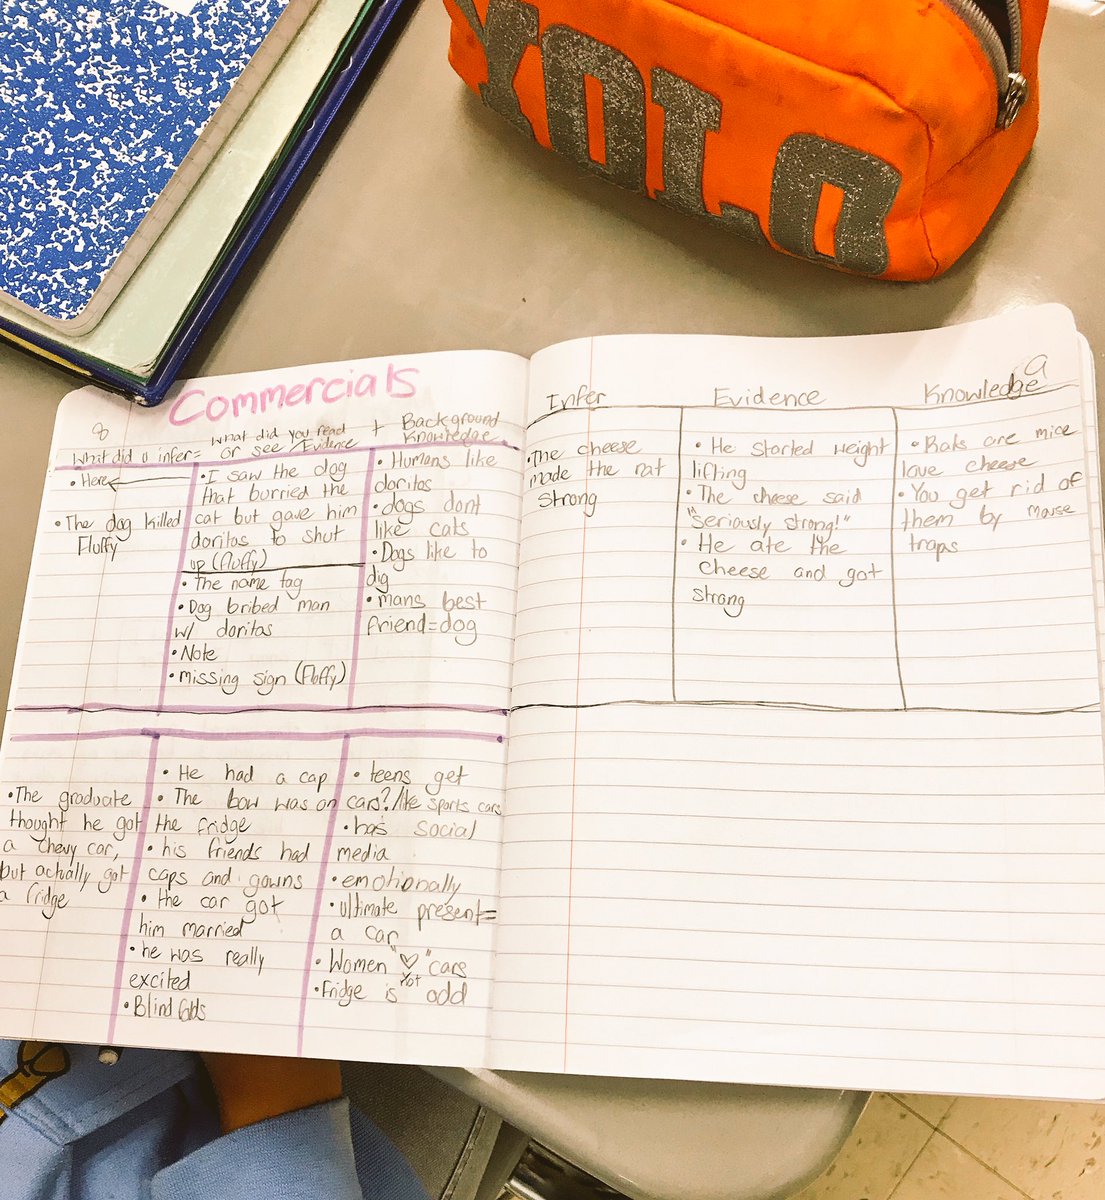 YOLO
Commercials
8
What did u infer=
What did you read
or see/Evidence
+
Background
Knowledge
• Here
• The dog killed
Fluffy
• I saw the dog
that burried the
cat but gave him
doritos to shut
up (fluffy)
• The name tag
• Dog bribed man
w/ doritos
• Note
• missing sign (Fluffy)
• Humans like
doritos
• dogs dont
like cats
• Dogs like to
dig
• mans best
friend=dog
• The graduate
thought he got
a chevy car,
but actually got
a fridge
• He had a cap
• The bow was on
the fridge
• his friends had
caps and gowns
• the car got
him married
• he was really
excited
• Blind folds
• teens get
cars?/like sports cars
• has social
media
• emotionally
• ultimate present=
a car
• Women "♡" cars
• Fridge is not odd
9
Infer
Evidence
Knowledge
• The cheese
made the rat
strong
• He started weight
lifting
• The cheese said
"seriously strong!"
• He ate the
cheese and got
strong
• Rats are mice
love cheese
• You get rid of
them by mouse
traps